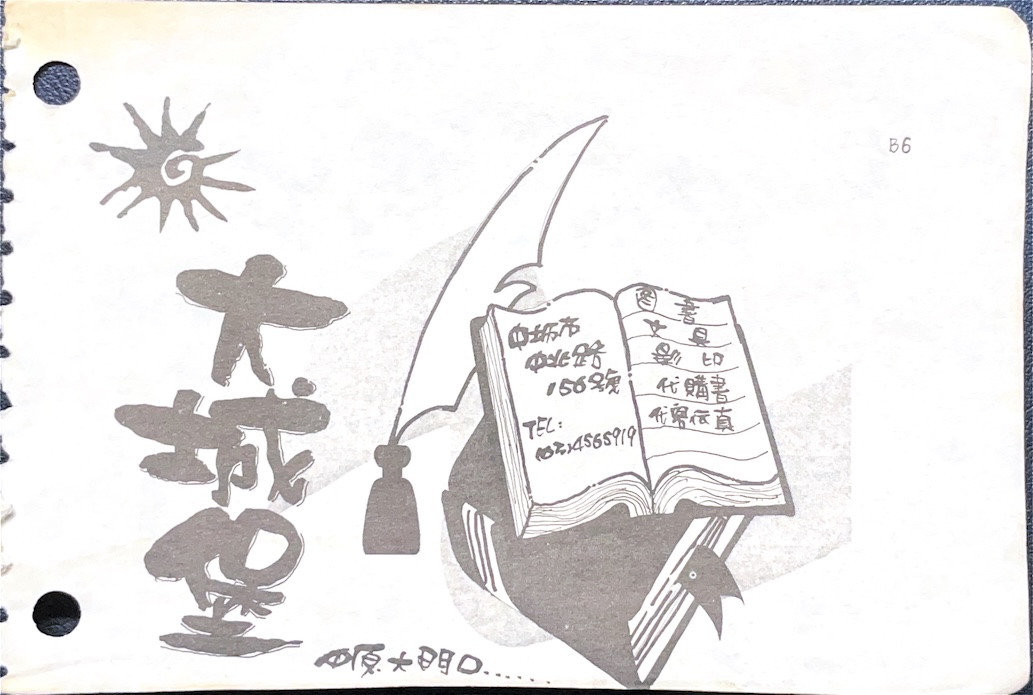 B6
大城堡
中坜市
中北路
156號
TEL:
(03)4565919
図書
文具
影印
代購書
代寄伝真
中原大門口......